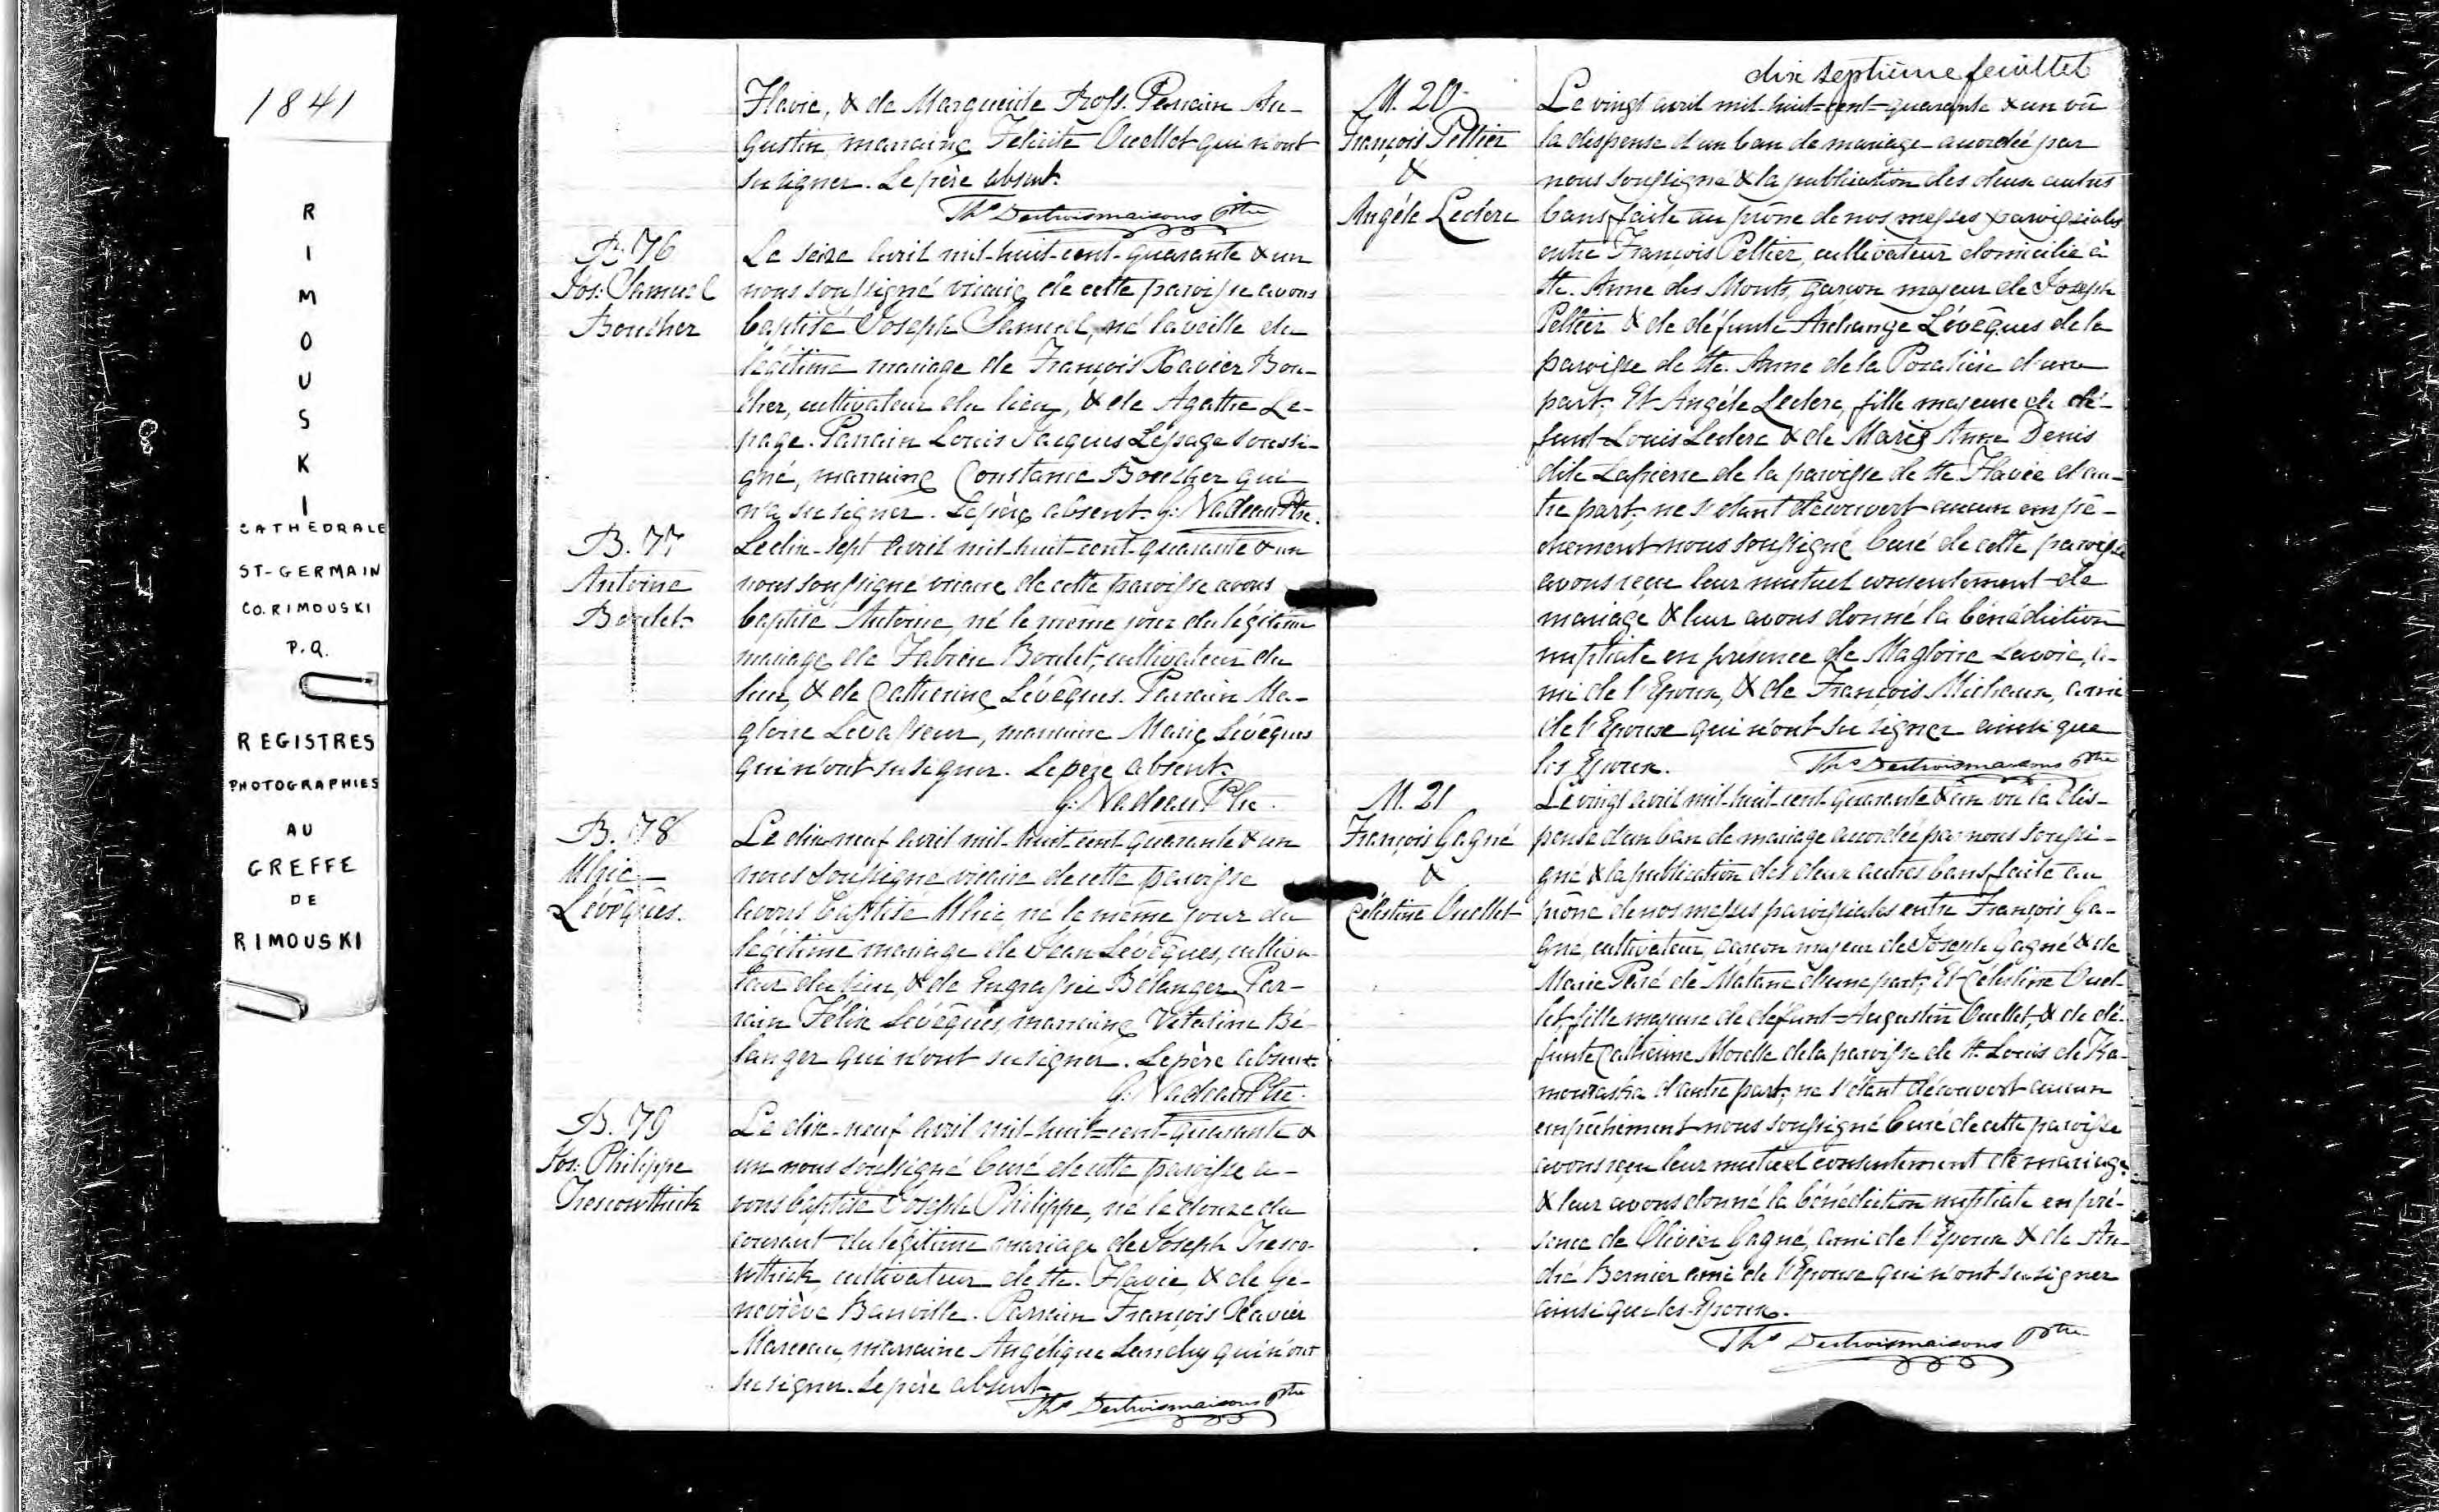 1841
RIMOUSKI
CATHEDRALE
ST-GERMAIN
CO. RIMOUSKI
P.Q.
REGISTRES
PHOTOGRAPHIES
AU
GREFFE
DE
RIMOUSKI
Flavie, & de Marguerite Ross. Parrain Au-
gustin, marraine Félicité Ouellet qui n'ont
su signer. Le père absent.
Ths Destroismaisons Ptre
B. 76
Jos: Samuel
Boucher
Le seize avril mil-huit-cent-quarante & un
nous soussigné vicaire de cette paroisse avons
baptisé Joseph Samuel, né la veille du
légitime mariage de François Xavier Bou-
cher, cultivateur du lieu, & de Agathe Le-
page. Parrain Louis Jacques Lepage soussi-
gné, marraine Constance Boucher qui
n'a su signer. Le père absent. G: Nadeau Ptre.
B. 77
Antoine
Boulet
Le dix-sept avril mil-huit-cent-quarante & un
nous soussigné vicaire de cette paroisse avons
baptisé Antoine, né le même jour du légitime
mariage de Fabien Boulet, cultivateur du
lieu, & de Catherine Lévêques. Parrain Ma-
gloire Levasseur, marraine Marie Lévêques
qui n'ont su signer. Le père absent.
G: Nadeau Ptre.
B. 78
Ulric
Lévêques.
Le dix neuf avril mil-huit cent quarante & un
nous soussigné vicaire de cette paroisse
avons baptisé Ulric, né le même jour du
légitime mariage de Jean Lévêques, cultiva-
teur du lieu, & de Bélanger. Par-
rain Félix Lévêques, marraine Vitaline Bé-
langer qui n'ont su signer. Le père absent.
G. Nadeau Ptre.
B. 79
Jos: Philippe
Trescowthick
Le dix-neuf avril mil-huit-cent-quarante &
un nous soussigné Curé de cette paroisse a-
vons baptisé Joseph Philippe, né le douze du
courant du légitime mariage de Joseph Tresco-
wthick, cultivateur de Ste. Flavie, & de Ge-
neviève Banville. Parrain François Xavier
Marceau, marraine Angélique Landry qui n'ont
su signer. Le père absent.
Ths Destroismaisons Ptre
dix septième feuillet
M. 20
François Peltier
&
Angéle Leclerc
Le vingt avril mil-huit-cent-quarante & un vû
la dispense d'un ban de mariage accordée par
nous soussigné & la publication des deux autres
bans faite au prône de nos messes paroissiales
entre François Peltier, cultivateur domicilié à
Ste. Anne des Monts, garçon majeur de Joseph
Peltier & de défunte Archange Lévêques de la
paroisse de Ste. Anne de la Pocatière d'une
part; Et Angéle Leclerc, fille majeure de dé-
funt Louis Leclerc & de Marie Anne Denis
dite Lapierre de la paroisse de Ste Flavie d'au-
tre part; ne s'étant découvert aucun empê-
chement nous soussigné Curé de cette paroisse
avons reçu leur mutuel consentement de
mariage & leur avons donné la bénédiction
nuptiale en présence de Magloire Lavoie, a-
mi de l'Epoux, & de François Michaux, ami
de l'Epouse qui n'ont su signer ainsi que
les Epoux. Ths Destroismaisons Ptre
M. 21
François Gagné
&
Célestine Ouellet
Le vingt avril mil-huit-cent quarante & un vu la dis-
pense d'un ban de mariage accordée par nous soussi-
gné & la publication des deux autres bans faite au
prône de nos messes paroissiales entre François Ga-
gné, cultivateur, garçon majeur de Joseph Gagné & de
Marie Paré de Matane d'une part; Et Célestine Ouel-
let, fille majeure de défunt Augustin Ouellet, & de dé-
funte Catherine Morelle de la paroisse de St. Louis de Ka-
mouraska d'autre part; ne s'étant découvert aucun
empêchement nous soussigné Curé de cette paroisse
avons reçu leur mutuel consentement de mariage
& leur avons donné la bénédiction nuptiale en pré-
sence de Olivier Gagné, ami de l'Epoux & de An-
dré Bernier ami de l'Epouse qui n'ont su signer
ainsi que les Epoux.
Ths Destroismaisons Ptre